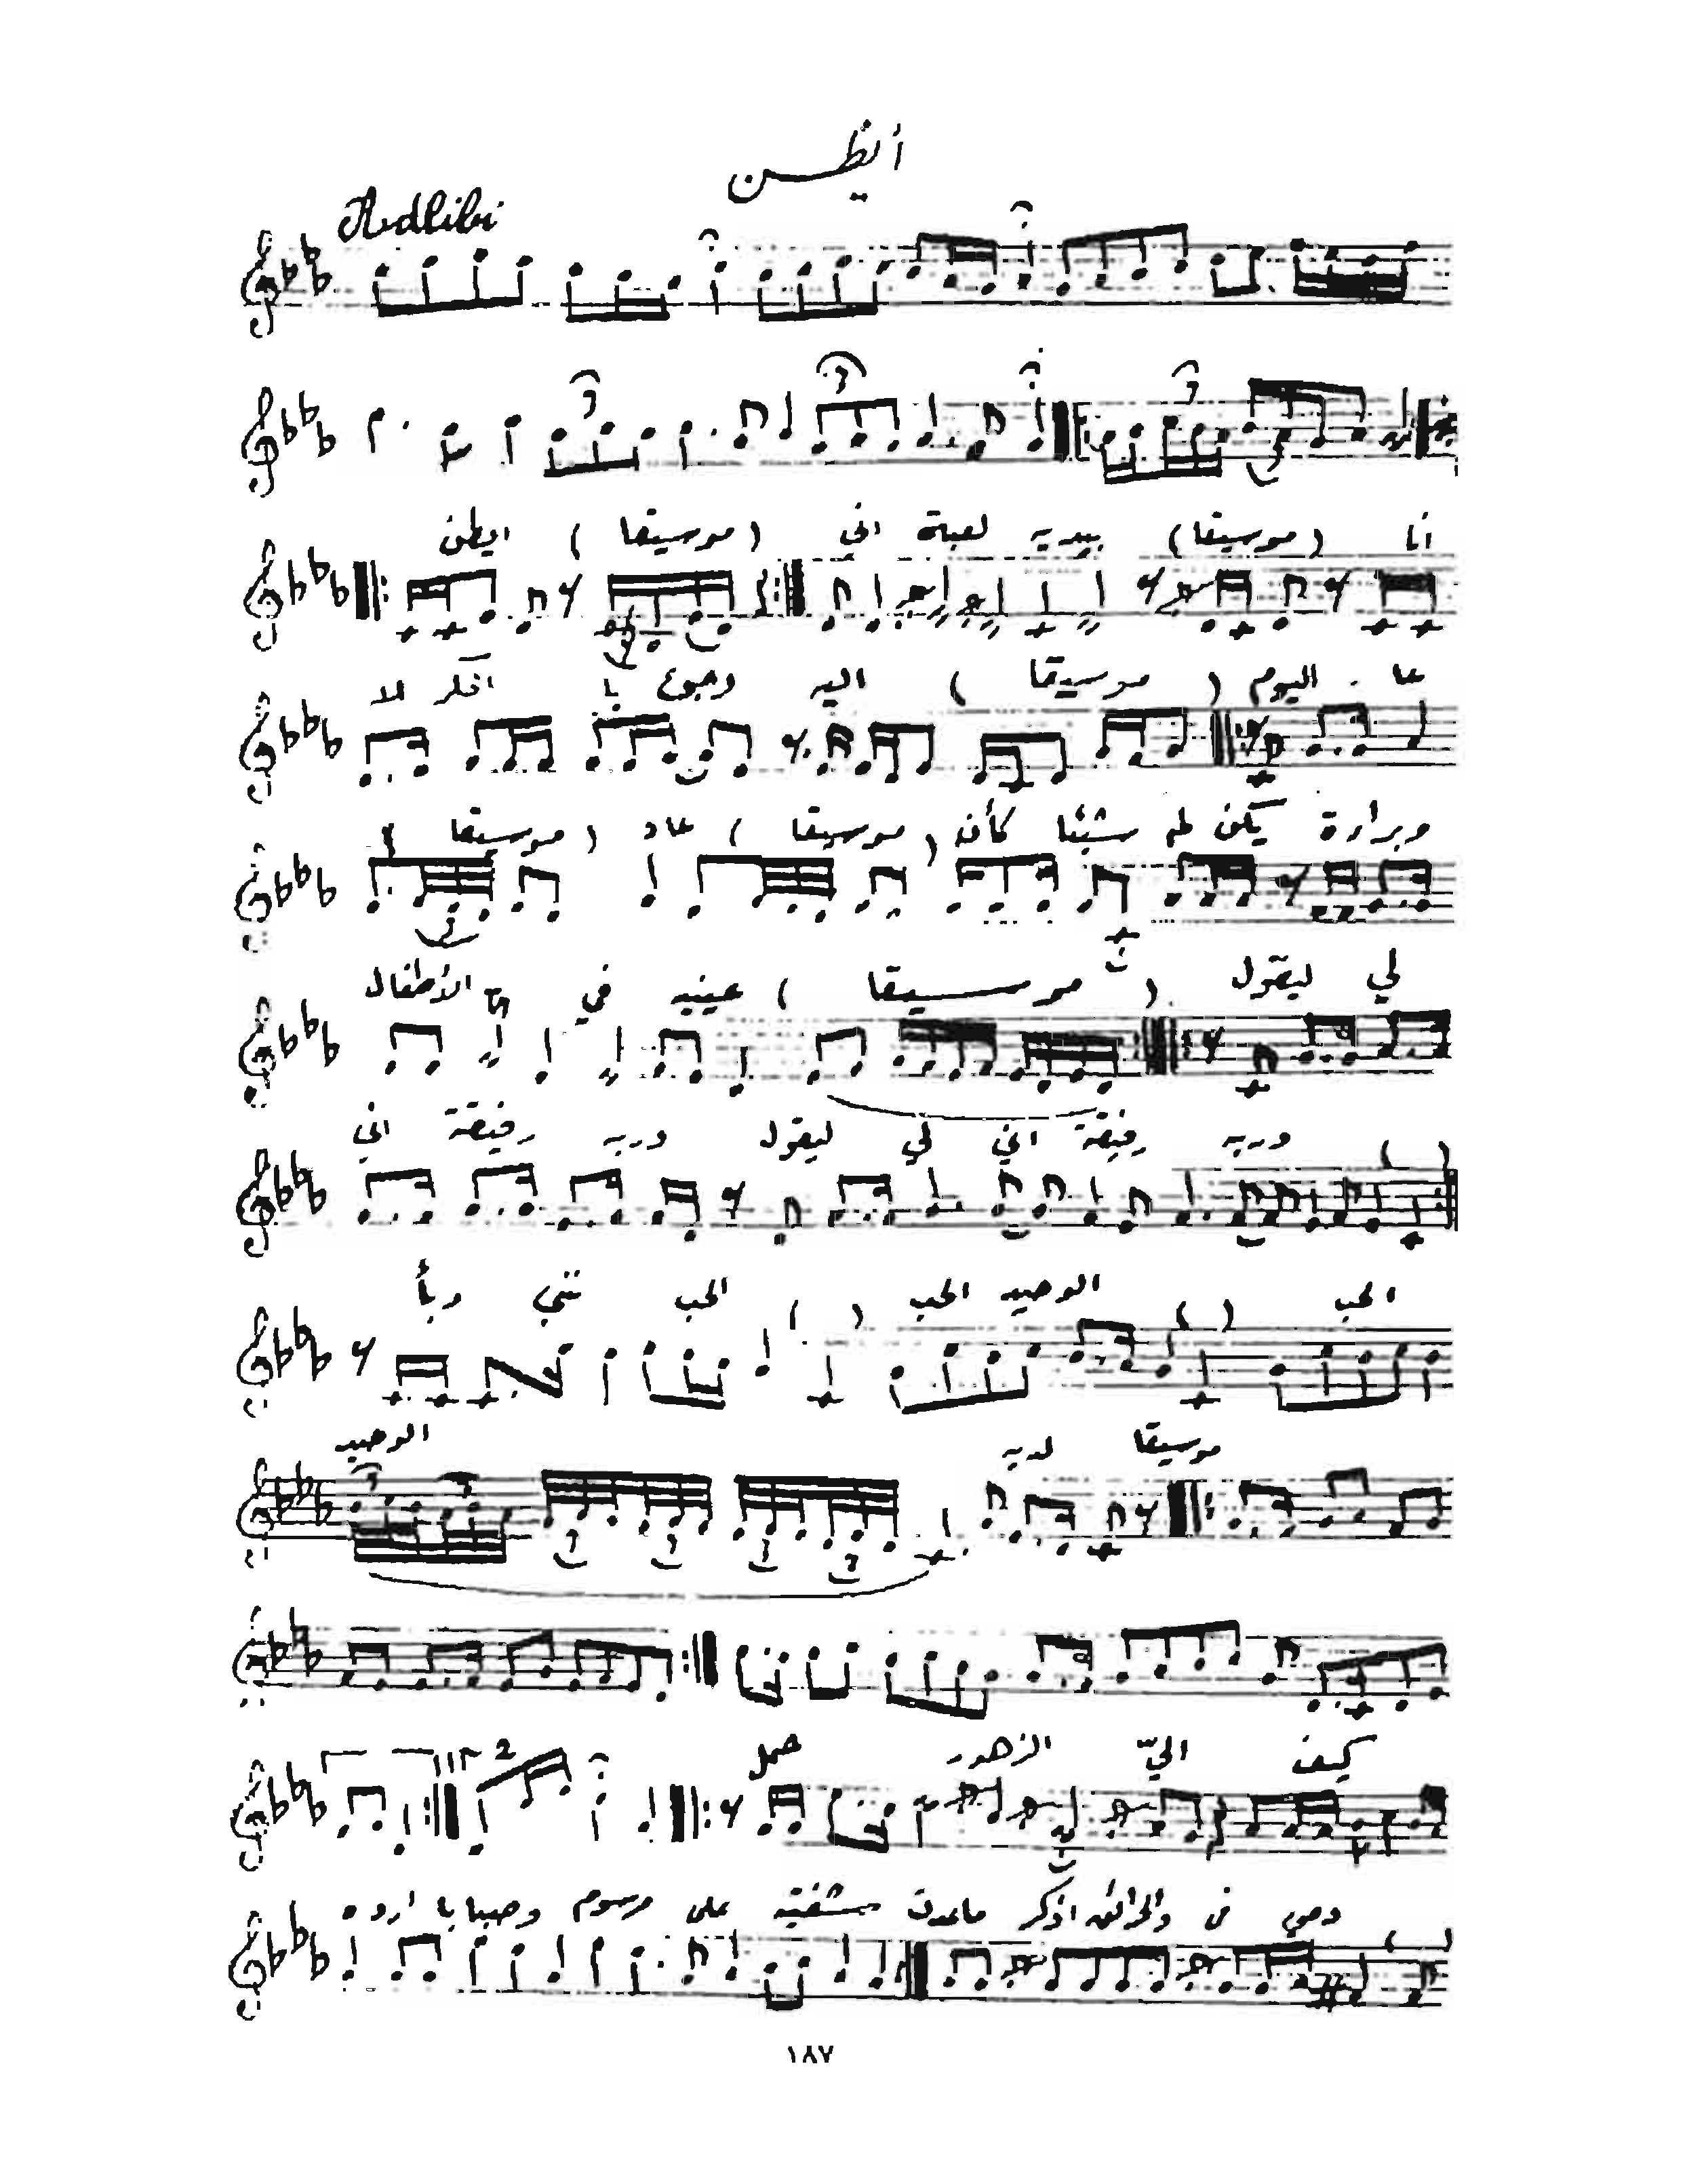 أيظن
Adlibi
ايظن ( موسيقا ) اني لعبة بيديه ( موسيقا ) انا
لا افكر با رجوع اليه ( موسيقا ) اليوم عا
( موسيقا ) عاد ( موسيقا ) كأن شيئا لم يكن وبراءة
الأطفال في عينيه ( موسيقا ) ليقول لي
اني رفيقة دربه ليقول لي اني رفيقة دربه ( )
وبأ نني الحب ( ) الحب الوحيد ( ) الحب
الوحيد لديه موسيقا
2
حمل الزهور اليّ كيف
اردہ وصبايا مرسوم على شفتيه ماعدت اذكر والحرائق في دمي
١٨٧